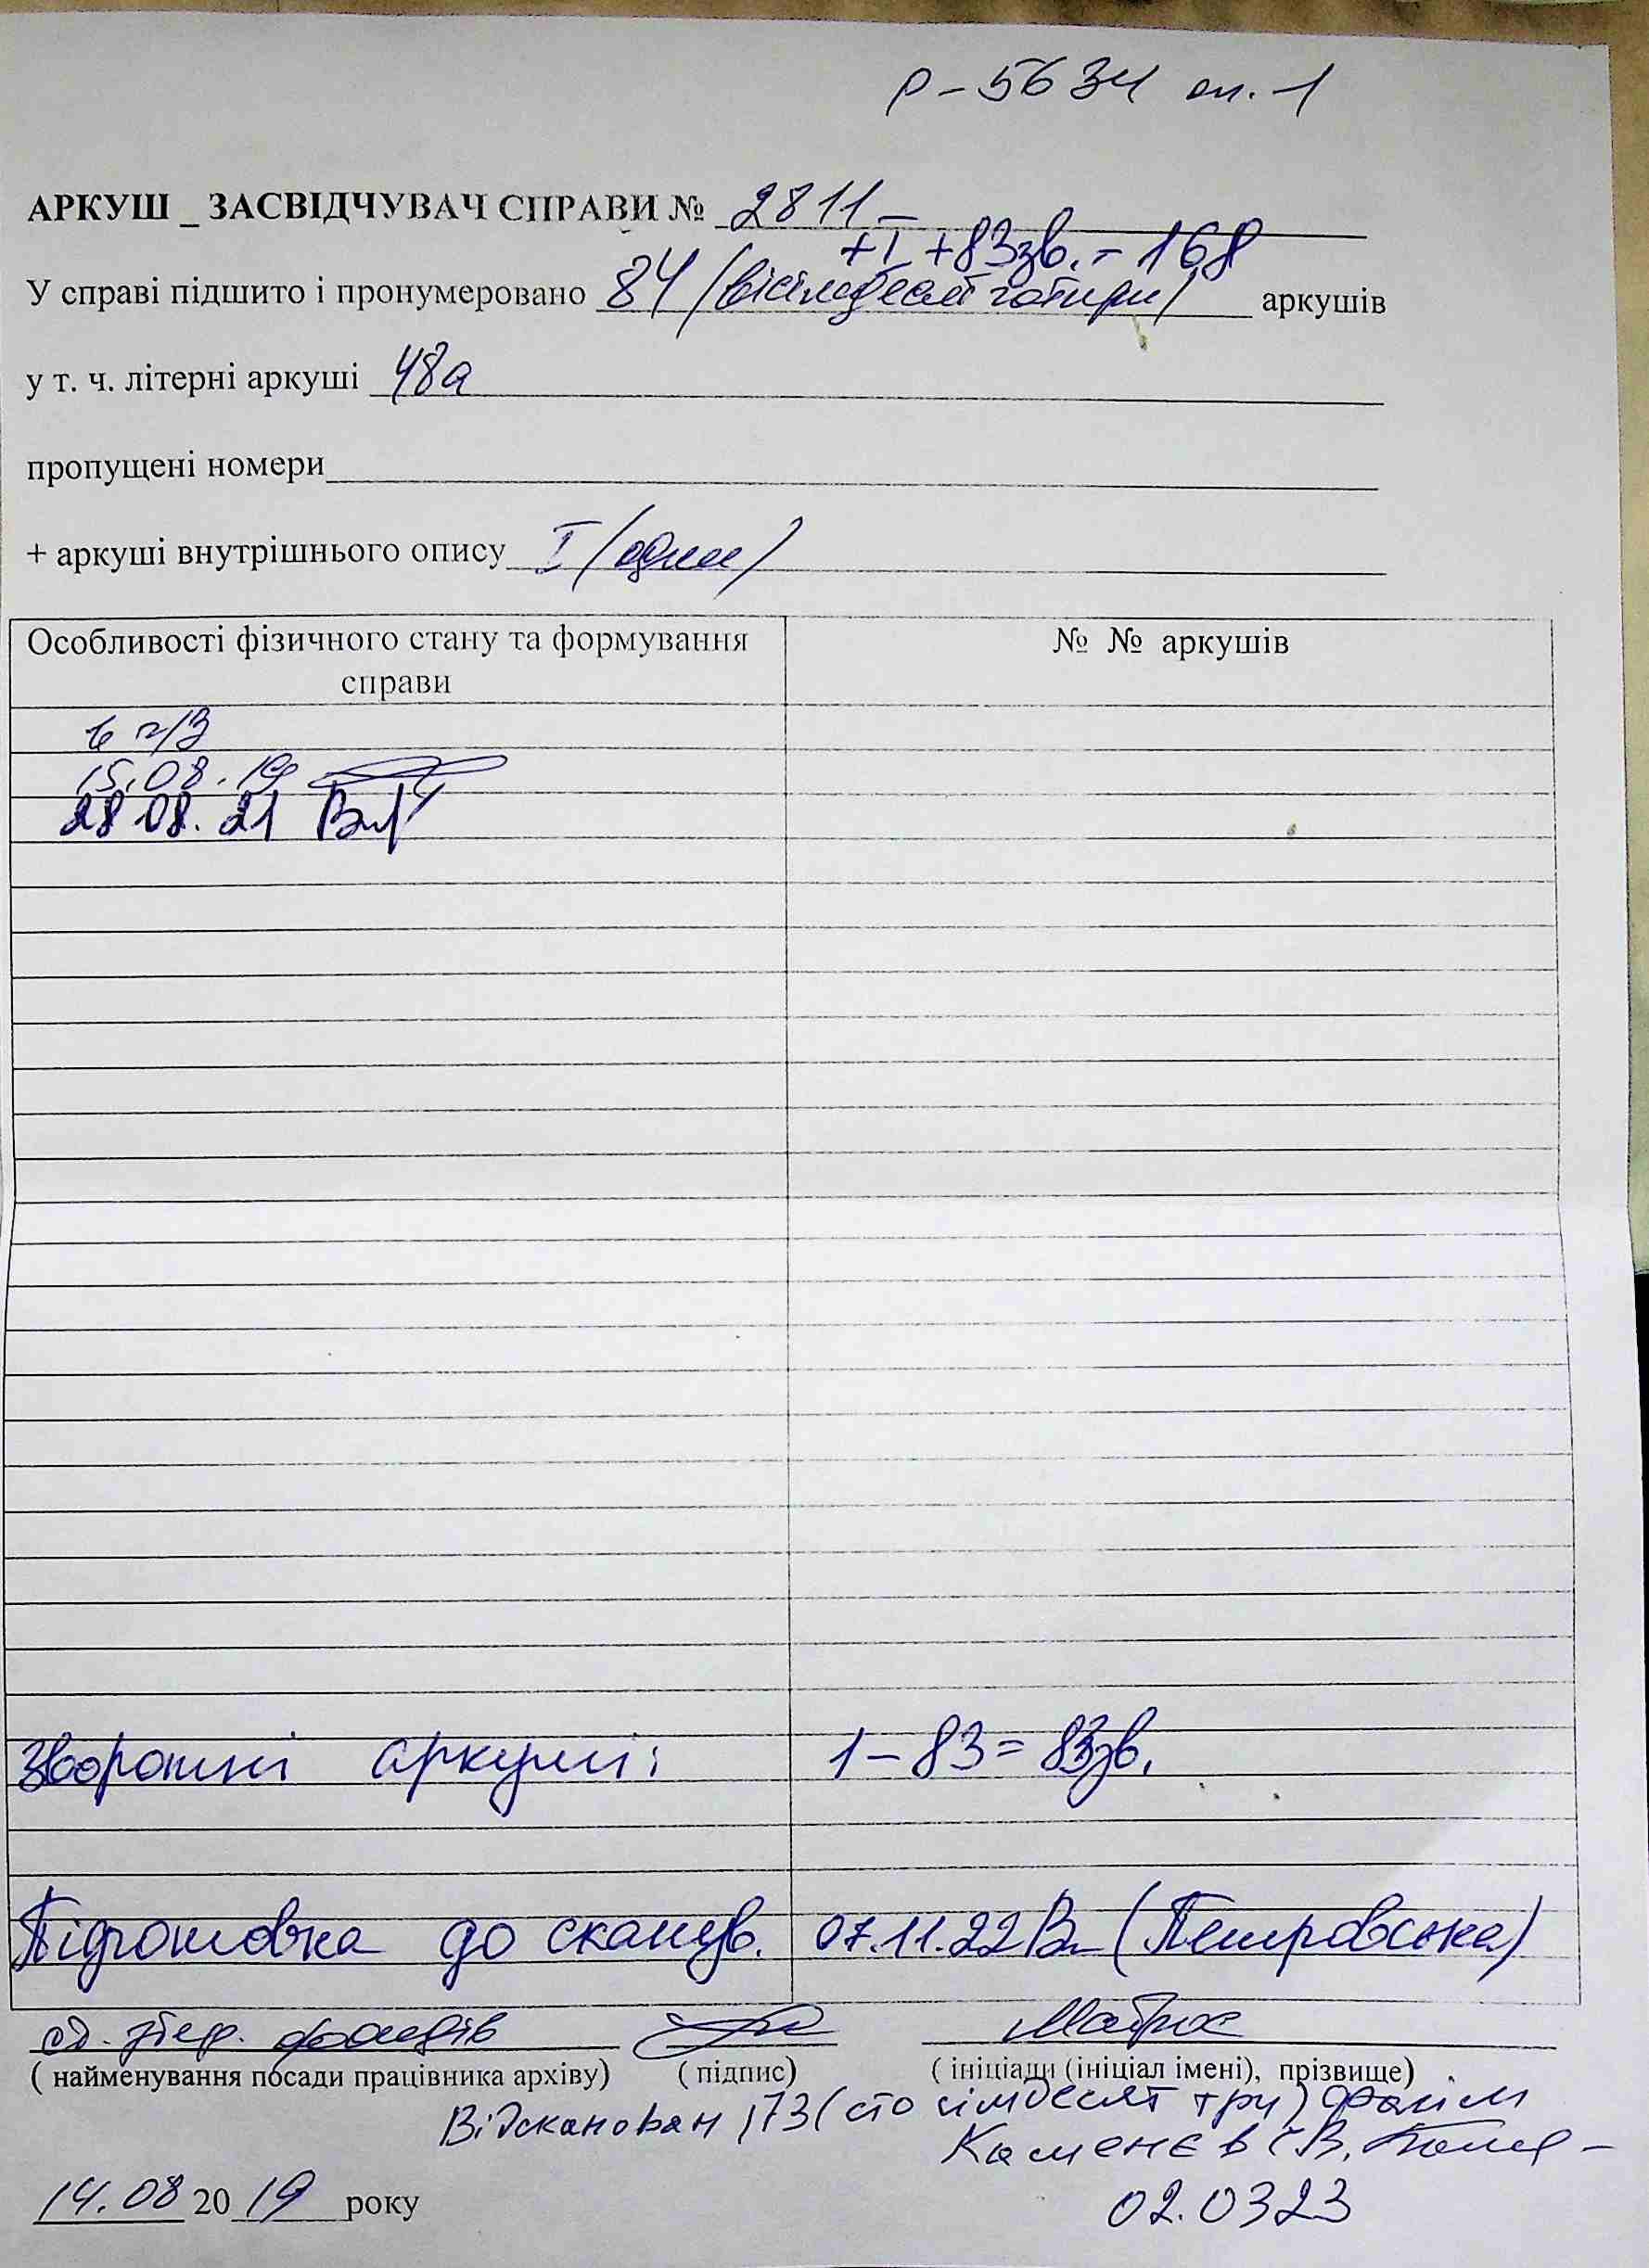 Р-5634 оп. 1
АРКУШ _ ЗАСВІДЧУВАЧ СПРАВИ № 2811-
+І +83зв. = 168
У справі підшито і пронумеровано 84 (вісімдесят чотири) аркушів
у т. ч. літерні аркуші 48а
пропущені номери
+ аркуші внутрішнього опису І (один)
Особливості фізичного стану та формування справи
№ № аркушів
15.08.19
28 08. 21
Зворотні аркуші: 1-83 = 83зв.
Підготовка до сканув. 07.11.22 (Петровська)
зб. фондів
( найменування посади працівника архіву) ( підпис) ( ініціали (ініціал імені), прізвище)
Відсканован 173 (сто сімдесят три) файл
Каменєв
14.08 2019 року
02.0323